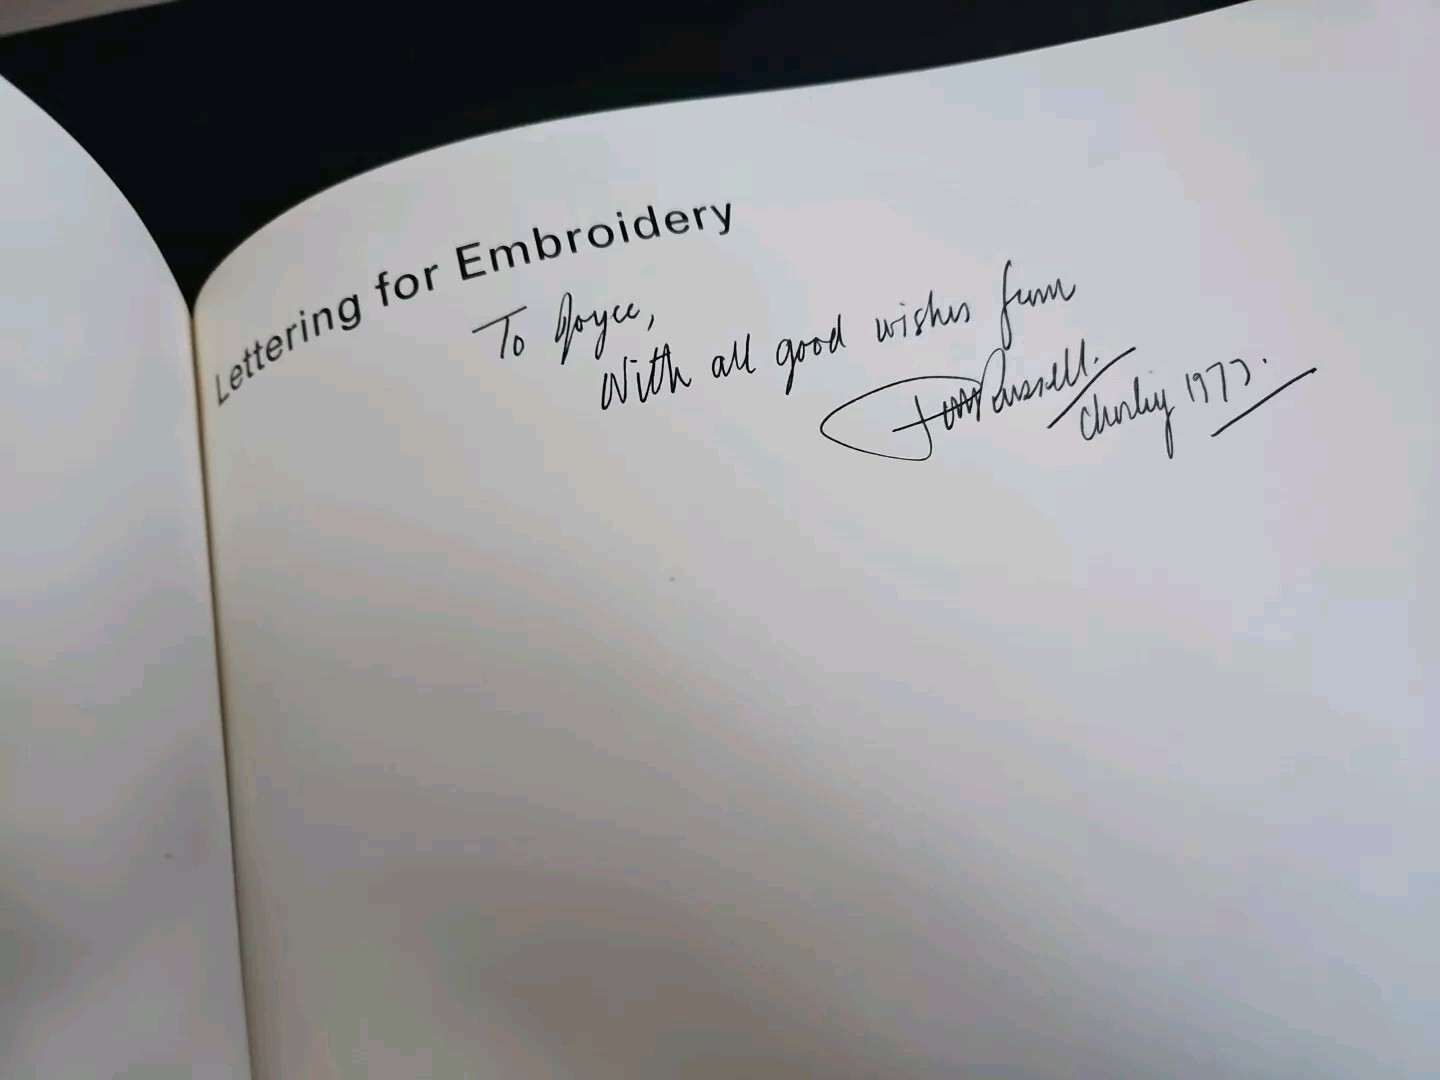 Lettering for Embroidery
To Joyce,
With all good wishes from
Pat Russell.
Chorley 197